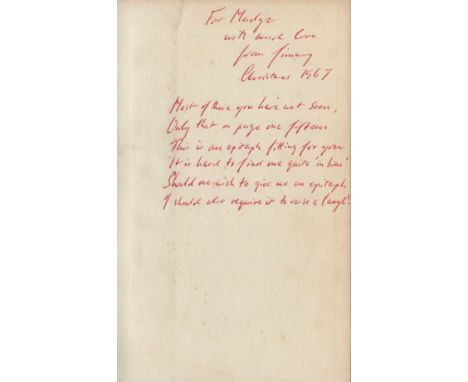 For Madge
with much love
from Jimmy
Christmas 1967
Most of these you have not seen,
Only that on page one fifteen.
This is an epitaph fitting for you
It is hard to find one quite 'in lieu'
Should one wish to give me an epitaph
I should also require it to raise a laugh!